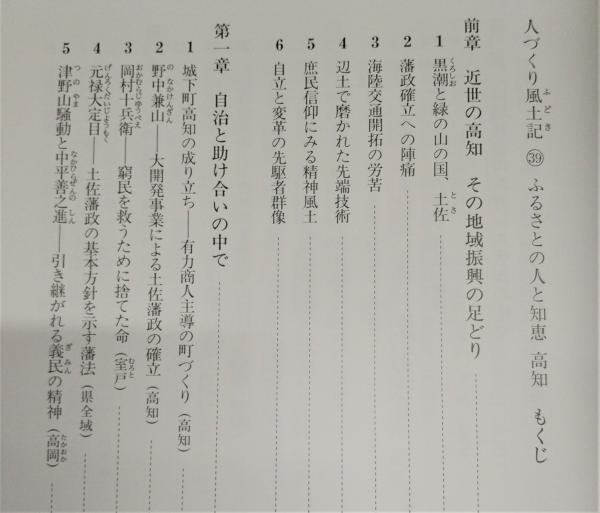 人づくり風土記 ㊴ ふるさとの人と知恵 高知 もくじ
前章 近世の高知 その地域振興の足どり
1 黒潮と緑の山の国、土佐
2 藩政確立への陣痛
3 海陸交通開拓の労苦
4 辺土で磨かれた先端技術
5 庶民信仰にみる精神風土
6 自立と変革の先駆者群像
第一章 自治と助け合いの中で
1 城下町高知の成り立ち——有力商人主導の町づくり(高知)
2 野中兼山——大開発事業による土佐藩政の確立(高知)
3 岡村十兵衛——窮民を救うために捨てた命(室戸)
4 元禄大定目——土佐藩政の基本方針を示す藩法(県全域)
5 津野山騒動と中平善之進——引き継がれる義民の精神(高岡)